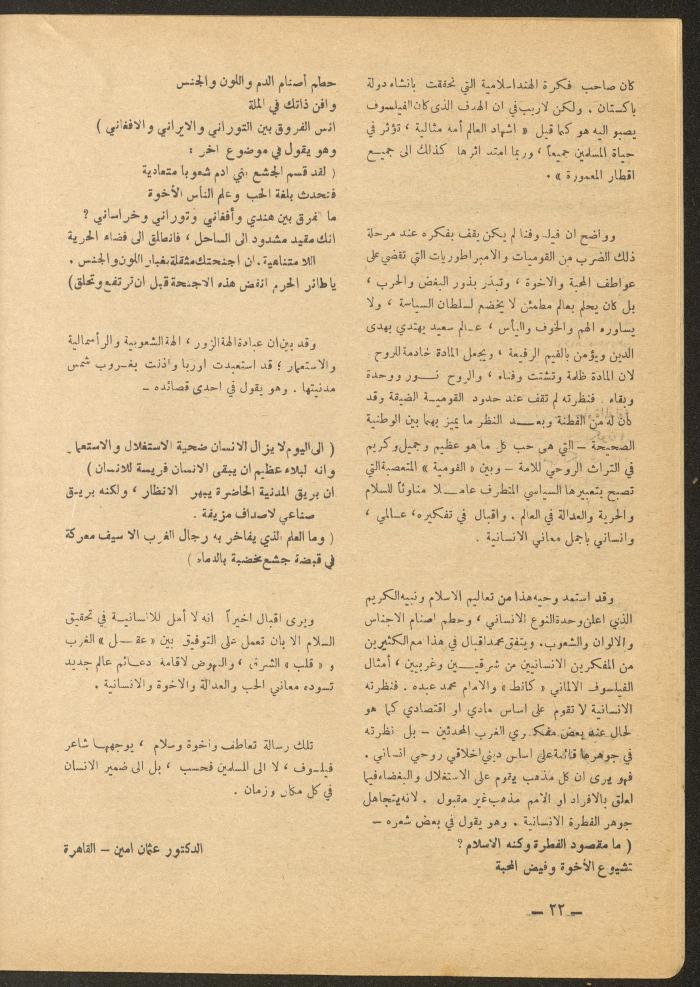 كان صاحب فكرة الهند اسلامية التي تحققت بانشاء دولة
باكستان . ولكن لا ريب في ان الهدف الذى كان الفيلسوف
يصبو اليه هو كما قيل « اشهاد العالم أمه مثالية ، تؤثر في
حياة المسلمين جميعاً ، وربما امتد اثرها كذلك الى جميع
اقطار المعمورة » .
وواضح ان فيلسوفنا لم يكن يقف بفكره عند مرحلة
ذلك الضرب من القوميات والامبراطوريات التي تقضي على
عواطف المحبة والاخوة ، وتبذر بذور البغض والحرب ،
بل كان يحلم بعالم مطمئن لا يخضع لسلطان السياسة ، ولا
يساوره الهم والخوف واليأس ، عالم سعيد يهتدي بهدى
الدين ويؤمن بالقيم الرفيعة ، ويجعل المادة خادمة للروح
لان المادة ظلمة وتشتت وفناء ، والروح نور ووحدة
وبقاء . فنظرته لم تقف عند حدود القومية الضيقة وقد
كأن له من الفطنة وبعد النظر ما يميز بهما بين الوطنية
الصحيحة – التي هى حب كل ما هو عظيم وجميل وكريم
في التراث الروحي للامة – وبين « القومية » المتعصبة التي
تصبح بتعبيرها السياسي المتطرف عاملا مناوئاً للسلام
والحرية والعدالة في العالم . واقبال في تفكيره، عالمي ،
وانساني باجمل معاني الانسانية .
وقد استمد وحيه هذا من تعاليم الاسلام ونبيه الكريم
الذي اعلن وحدة النوع الانساني ، وحطم اصنام الاجناس
والالوان والشعوب. ويتفق محمد اقبال في هذا مع الكثيرين
من المفكرين الانسانيين من شرقيين وغربيين ، أمثال
الفيلسوف الالماني « كانط » والامام محمد عبده . فنظرته
الانسانية لا تقوم على اساس مادي او اقتصادي كما هو
لحال عند بعض مفكري الغرب المحدثين – بل نظرته
في جوهرها قائمة على اساس ديني اخلاقي روحي انساني .
فهو يرى ان كل مذهب يقوم على الاستغلال والبغضاء فيما
اعلق بالافراد او الامم مذهب غير مقبول . لانه يتجاهل
جوهر الفطرة الانسانية . وهو يقول في بعض شعره –
( ما مقصود الفطرة وكنه الاسلام ؟
تشيوع الأخوة وفيض المحبة
حطم أصنام الدم واللون والجنس
وافن ذاتك في الملة
انس الفروق بين التوراني والايراني والافغاني )
وهو يقول في موضوع اخر :
( لقد قسم الجشع بني ادم شعوبا متعادية
فتحدث بلغة الحب وعلم الناس الأخوة
ما الفرق بين هندي وأفغاني وتوراني وخراساني ؟
انك مقيد مشدود الى الساحل ، فانطلق الى فضاء الحرية
اللا متناهية. ان اجنحتك مثقلة بغبار اللون والجنس .
يا طائر الحرم انفض هذه الاجنحة قبل ان ترتفع وتحلق)
وقد بين ان عبادة الهة الزور ، الهة الشعوبية والرأسمالية
والاستعمار ؛ قد استعبدت اوربا واذنت بغروب شمس
مدنيتها . وهو يقول في احدى قصائده –
( الى اليوم لا يزال الانسان ضحية الاستغلال والاستعمار
وانه لبلاء عظيم ان يبقى الانسان فريسة للانسان )
ان بريق المدنية الحاضرة يبهر الانظار ، ولكنه بريق
صناعي لاصداف مزيفة .
( وما العلم الذي يفاخر به رجال الغرب الا سيف معركة
في قبضة جشع مخضبة بالدماء )
ويرى اقبال اخيراً انه لا أمل للانسانية في تحقيق
السلام الا بان تعمل على التوفيق بين « عقل » الغرب
و « قلب » الشرق ، والنهوض لاقامة دعائم عالم جديد
تسوده معاني الحب والعدالة والاخوة والانسانية .
تلك رسالة تعاطف واخوة وسلام ، يوجهها شاعر
فيلسوف ، لا الى المسلمين فحسب ، بل الى ضمير الانسان
في كل مكان وزمان .
الدكتور عثمان امين – القاهرة
– ٢٢ –